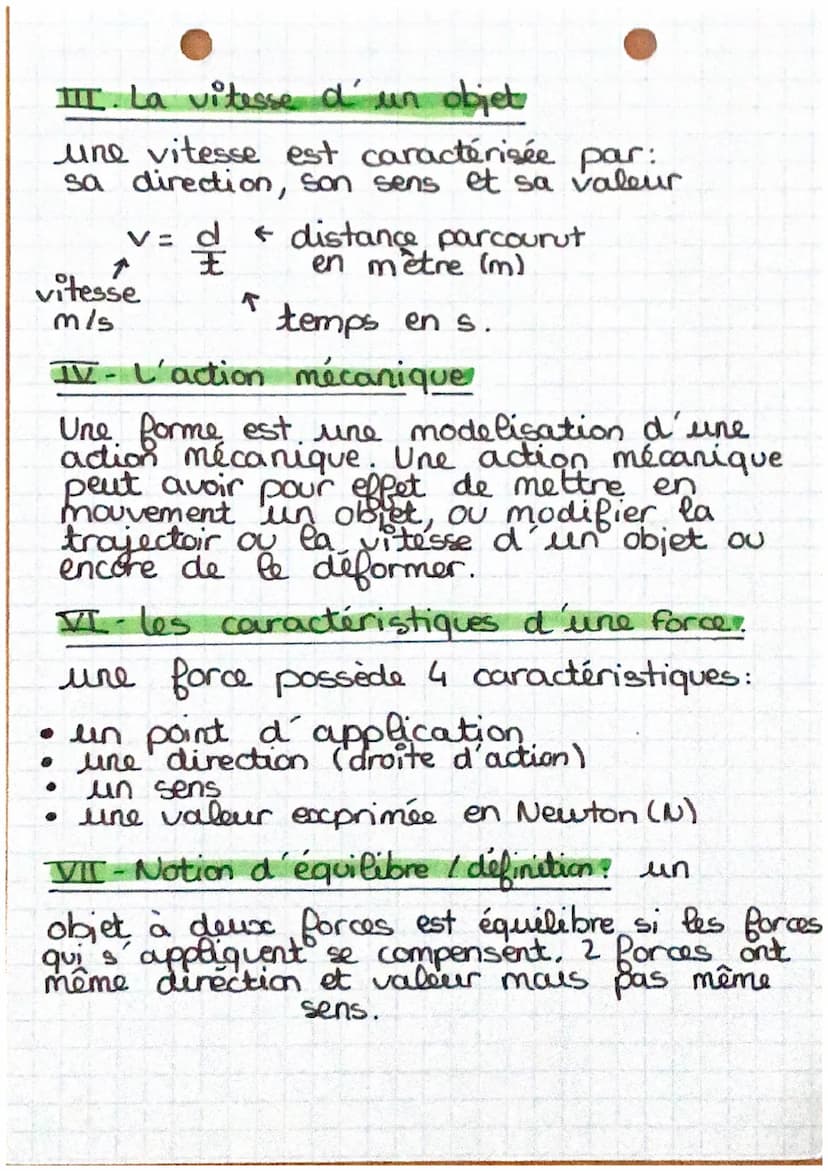 III. La vitesse d'un objet
une vitesse est caractérisée par:
sa direction, son sens et sa valeur
v = d/t ← distance parcourut
en mètre (m)
vitesse
m/s
temps en s.
IV - L'action mécanique
Une forme est une modelisation d'une
action mécanique. Une action mécanique
peut avoir pour effet de mettre en
mouvement un objet, ou modifier la
trajectoir ou la vitesse d'un objet ou
encore de le déformer.
VI - les caractéristiques d'une force.
une force possède 4 caractéristiques:
• un point d'application
• une direction (droite d'action)
• un sens
• une valeur exprimée en Newton (N)
VII - Notion d'équilibre / définition: un
objet à deux forces est équilibre si les forces
qui s'appliquent se compensent. 2 forces ont
même direction et valeur mais pas même
sens.